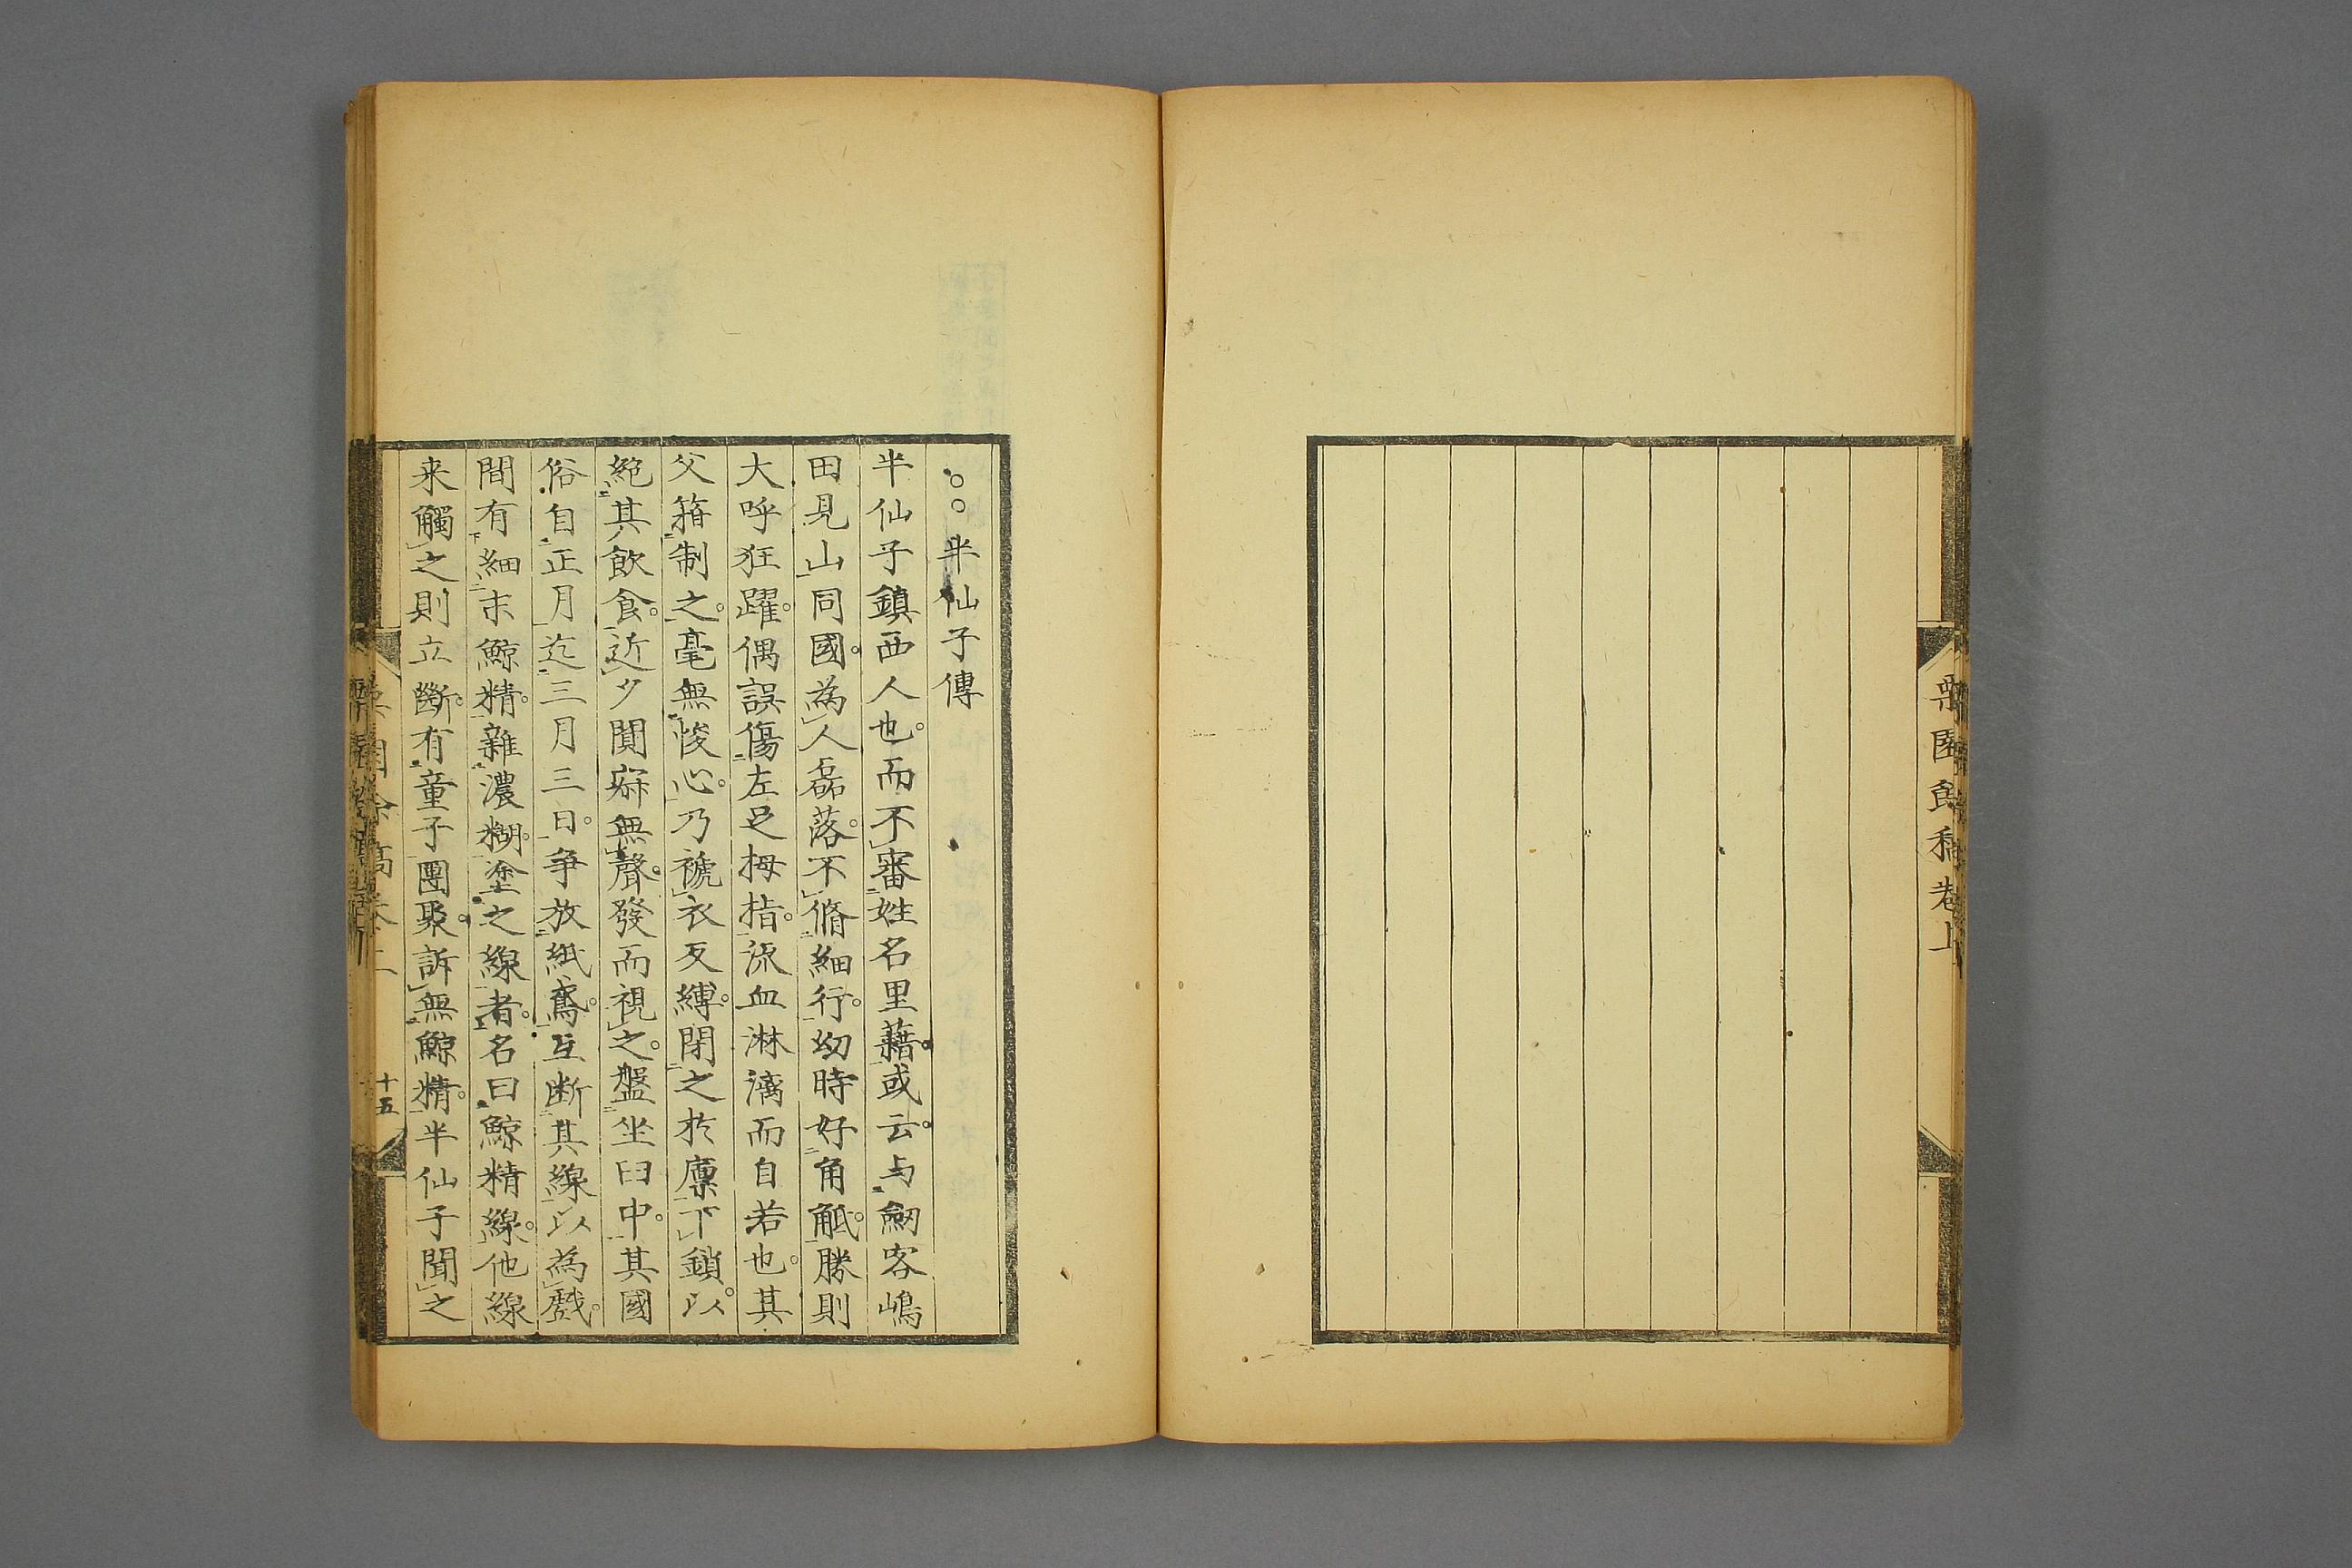 栗園餘稿卷上
○○半仙子傳
半仙子鎮西人也。而不審姓名里藉。或云。与劔客嶋
田見山同國。為人磊落。不脩細行。幼時好角觝。勝則
大呼狂躍。偶誤傷左足拇指。流血淋漓而自若也。其
父箝制之。毫無悛心。乃褫衣反縛。閉之於廩下鎖。以
絶其飲食。近夕闃寂無聲。發而視之。盤坐臼中。其國
俗自正月迄三月三日。争放紙鳶。互断其線以為戲。
間有細末鯨精。雜濃糊。塗之線者。名曰鯨精線。他線
来觸之則立斷。有童子團聚。訴無鯨精。半仙子聞之
十五